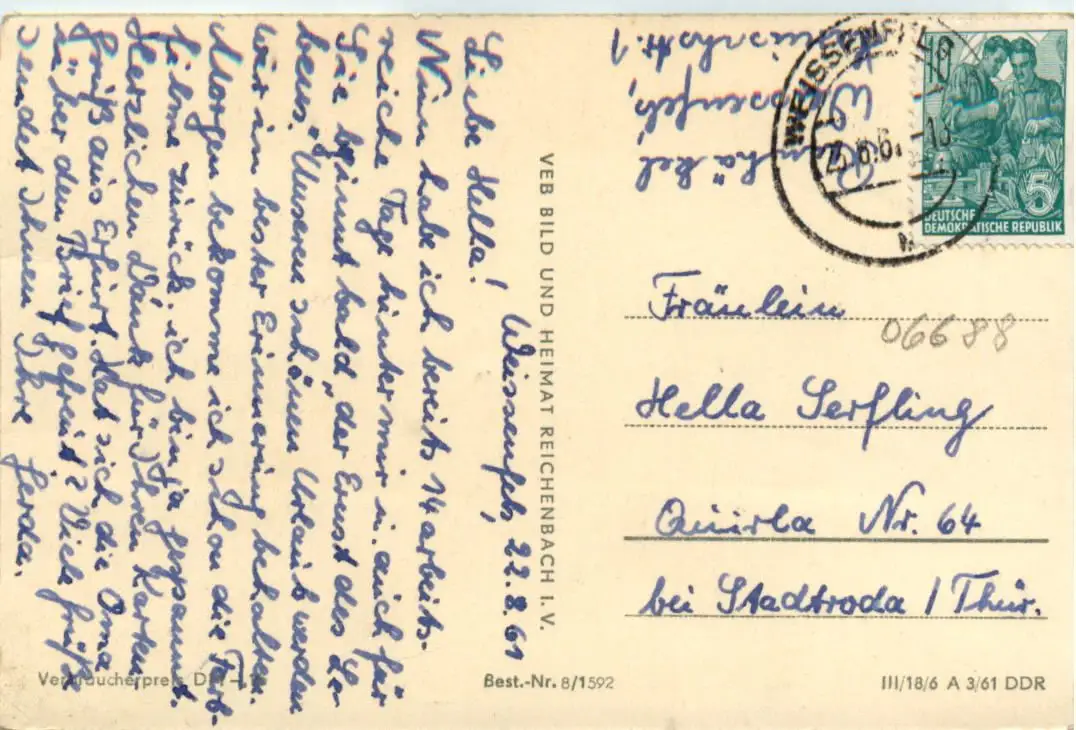 Weissenfels, 22.8.61
Liebe Hella!
Nun habe ich bereits 14 arbeits-
reiche Tage hinter mir u. auch für
Sie beginnt bald "der Ernst des Le-
bens." Unseren schönen Urlaub werden
wir in bester Erinnerung behalten.
Morgen bekomme ich schon die Farb-
filme zurück. ich bin ja gespannt.
Herzlichen Dank für Ihren Karten-
gruß aus Erfurt. Hat sich die Oma
über den Brief gefreut? Viele Grüße
sendet Ihnen Ihre Gerda.
VEB BILD UND HEIMAT REICHENBACH I. V.
WEISSENFELS
DEUTSCHE
DEMOKRATISCHE REPUBLIK
5
Fräulein
06688
Hella Serfling
Quirla Nr. 64
bei Stadtroda / Thür.
Verbraucherpreis
Best.-Nr. 8/1592
III/18/6 A 3/61 DDR